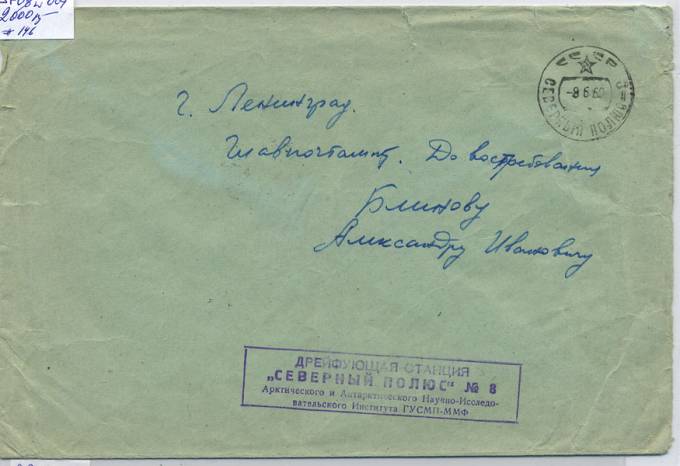 2600
# 146
СССР
СЕВЕРНЫЙ ПОЛЮС
-8 6 60
г. Ленинград.
Главпочтамт. До востребования
Блинову
Александру Ивановичу
ДРЕЙФУЮЩАЯ СТАНЦИЯ
„СЕВЕРНЫЙ ПОЛЮС“ № 8
Арктического и Антарктического Научно-Исследо-
вательского Института ГУСМП-ММФ